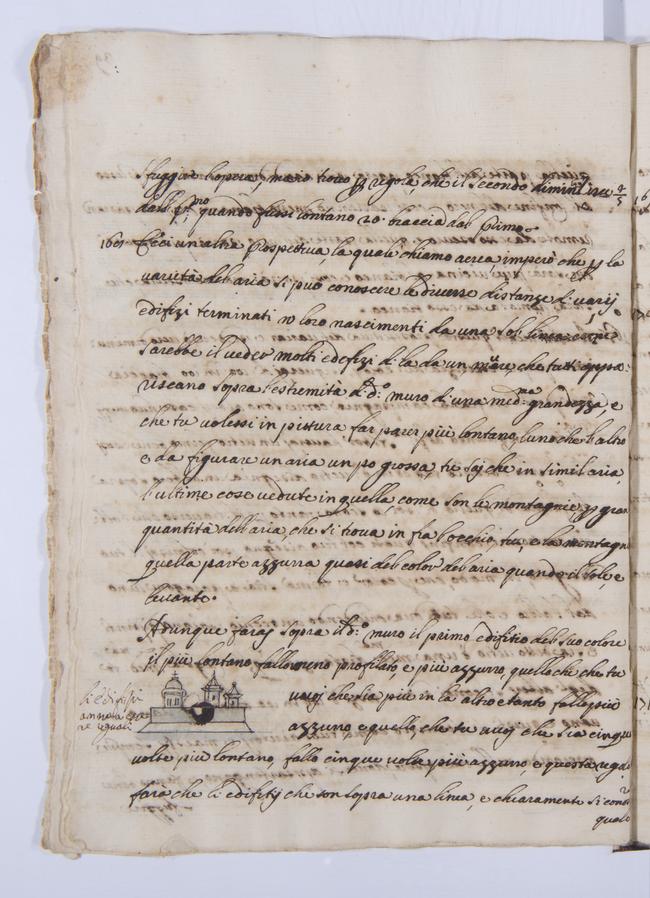 sfuggire l'opera, ma io trovo p regola, che il secondo diminuisce 4/5
dal p.mo quando fussi lontano 20 braccia dal primo.
160. Ecci un altra prospettiva la quale chiamo aerea, imperò che p la
varietà del aria si può conoscere le diverse distanze di varij
edifizi terminati ne loro nascimenti da una sola linea: come
sarebbe il veder molti edefizi di la da un muro, che tutti appa:
riscano sopra l'estremità d.o d.o muro d'una med.ma grandezza, e
che tu volessi in pittura, far parer più lontano l'uno che l'altro
e da figurare un aria un po grossa, tu sai che in simil aria,
l'ultime cose vedute in quella, come son le montagnie, p gran
quantità dell'aria, che si trova in fra l'occhio tuo, e la montagnia
quella parte azzurra quasi del color del aria quando il sole, e
levante.
Adunque faraj sopra il d.o muro il primo edifitio del suo colore
il più lontano fallo meno profilato, e più azzurro, quello che che tu
vuoj che sia più in la altro e tanto fallo più
azzurro e quello, che tu vuoj che sia cinque
volte più lontano, fallo cinque volte più azzurro, e questa regola
fara che li edifitij che son sopra una linea, e chiaramente si conos
quale
li edifizi
reguali